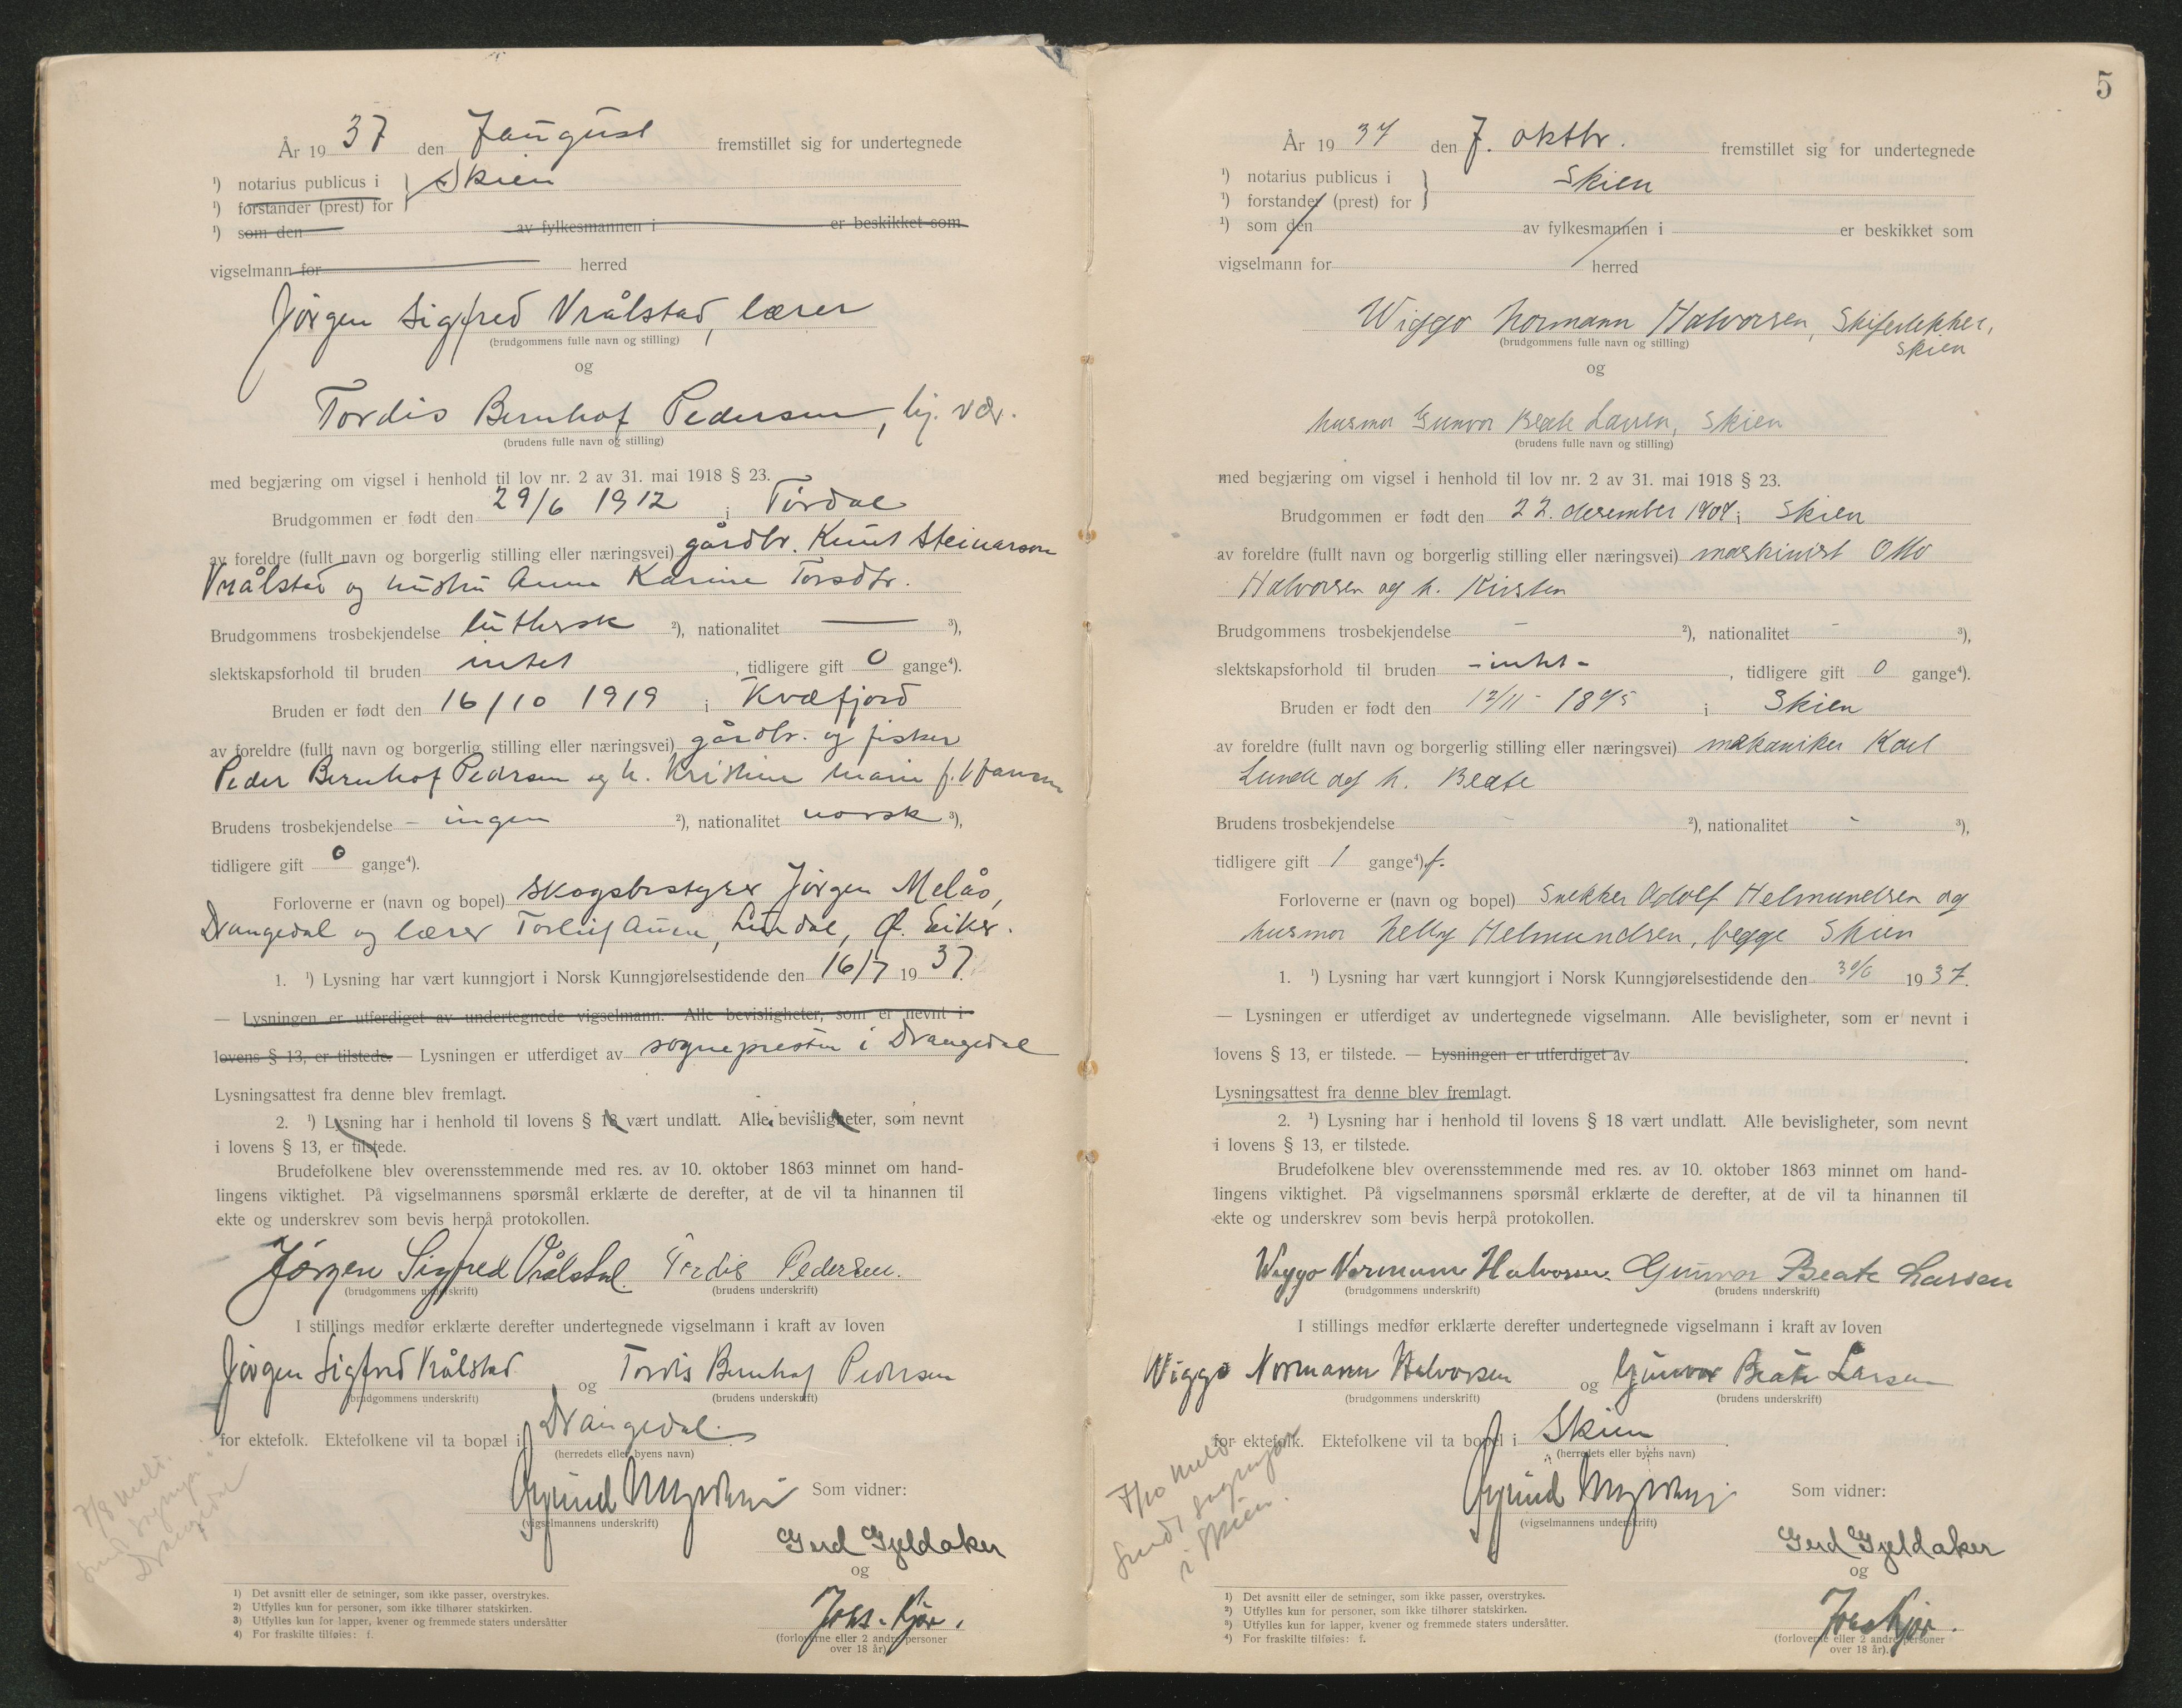 År 19 37 den 7 august fremstillet sig for undertegnede
¹) notarius publicus i } Skien
¹) forstander (prest) for
¹) som den av fylkesmannen i er beskikket som
vigselmann for herred
Jörgen Sigfred Vrålstad, lærer
(brudgommens fulle navn og stilling)
og
Tordis Bernhof Pedersen, hj. vær.
(brudens fulle navn og stilling)
med begjæring om vigsel i henhold til lov nr. 2 av 31. mai 1918 § 23.
Brudgommen er født den 29/6 1912 i Tördal
av foreldre (fullt navn og borgerlig stilling eller næringsvei) gårdbr. Knut Steinarson
Vrålstad og hustru Anne Karine Torsdtr.
Brudgommens trosbekjendelse luthersk ²), nationalitet — ³),
slektskapsforhold til bruden intet, tidligere gift 0 gange⁴).
Bruden er født den 16/10 1919 i Kvæfjord
av foreldre (fullt navn og borgerlig stilling eller næringsvei) gårdbr. og fisker
Peder Bernhof Pedersen og h. Kristine Marie f.
Brudens trosbekjendelse - ingen ²), nationalitet norsk ³),
tidligere gift 0 gange⁴).
Forloverne er (navn og bopel) skogsbestyrer Jörgen Melås,
Drangedal og lærer Torleif, Ø. Eiker.
1. ¹) Lysning har vært kunngjort i Norsk Kunngjørelsestidende den 16/7 19 37.
— Lysningen er utferdiget av undertegnede vigselmann. Alle bevisligheter, som er nevnt i
lovens § 13, er tilstede. — Lysningen er utferdiget av sognepresten i Drangedal
Lysningsattest fra denne blev fremlagt.
2. ¹) Lysning har i henhold til lovens § 18 vært undlatt. Alle bevisligheter, som nevnt
i lovens § 13, er tilstede.
Brudefolkene blev overensstemmende med res. av 10. oktober 1863 minnet om hand-
lingens viktighet. På vigselmannens spørsmål erklærte de derefter, at de vil ta hinannen til
ekte og underskrev som bevis herpå protokollen.
Jörgen Sigfred Vrålstad. Tordis Pedersen.
(brudgommens underskrift) (brudens underskrift)
I stillings medfør erklærte derefter undertegnede vigselmann i kraft av loven
Jörgen Sigfred Vrålstad og Tordis Bernhof Pedersen
(brudgommens underskrift) (brudens underskrift)
for ektefolk. Ektefolkene vil ta bopæl i Drangedal.
(herredets eller byens navn)
(vigselmannens underskrift)
Som vidner:
Gerd Gjeldaker
og
Johs. Kjær.
(forloverne eller 2 andre personer
over 18 år)
7/8 meld.
sendt sogнepr. i
Drangedal
1) Det avsnitt eller de setninger, som ikke passer, overstrykes.
2) Utfylles kun for personer, som ikke tilhører statskirken.
3) Utfylles kun for lapper, kvener og fremmede staters undersåtter
4) For fraskilte tilføies: f.
5
År 19 37 den 7. oktbr. fremstillet sig for undertegnede
¹) notarius publicus i } Skien
¹) forstander (prest) for
¹) som den av fylkesmannen i er beskikket som
vigselmann for herred
Wiggo Normann Halvorsen, Skifertekker,
Skien
(brudgommens fulle navn og stilling)
og
husmor Gunvor Beate Larsen, Skien
(brudens fulle navn og stilling)
med begjæring om vigsel i henhold til lov nr. 2 av 31. mai 1918 § 23.
Brudgommen er født den 22. desember 1904 i Skien
av foreldre (fullt navn og borgerlig stilling eller næringsvei) maskinist Otto
Halvorsen og h. Kirsten
Brudgommens trosbekjendelse - ²), nationalitet - ³),
slektskapsforhold til bruden - intet -, tidligere gift 0 gange⁴).
Bruden er født den 12/11 - 1895 i Skien
av foreldre (fullt navn og borgerlig stilling eller næringsvei) mekaniker Karl
Lunde og h. Beate
Brudens trosbekjendelse - ²), nationalitet - ³),
tidligere gift 1 gange⁴) f.
Forloverne er (navn og bopel) Snekker Adolf Helmundsen og
husmor Nelly Helmundsen, begge Skien
1. ¹) Lysning har vært kunngjort i Norsk Kunngjørelsestidende den 30/6 19 37.
— Lysningen er utferdiget av undertegnede vigselmann. Alle bevisligheter, som er nevnt i
lovens § 13, er tilstede. — Lysningen er utferdiget av .
Lysningsattest fra denne blev fremlagt.
2. ¹) Lysning har i henhold til lovens § 18 vært undlatt. Alle bevisligheter, som nevnt
i lovens § 13, er tilstede.
Brudefolkene blev overensstemmende med res. av 10. oktober 1863 minnet om hand-
lingens viktighet. På vigselmannens spørsmål erklærte de derefter, at de vil ta hinannen til
ekte og underskrev som bevis herpå protokollen.
Wiggo Normann Halvorsen. Gunvor Beate Larsen
(brudgommens underskrift) (brudens underskrift)
I stillings medfør erklærte derefter undertegnede vigselmann i kraft av loven
Wiggo Normann Halvorsen og Gunvor Beate Larsen
(brudgommens underskrift) (brudens underskrift)
for ektefolk. Ektefolkene vil ta bopel i Skien.
(herredets eller byens navn)
(vigselmannens underskrift)
Som vidner:
Gerd Gjeldaker
og
Johs Kjær.
(forloverne eller 2 andre personer
over 18 år).
7/10 meld
sendt sognepr.
i Skien.
1) Det avsnitt eller de setninger, som ikke passer, overstrykes.
2) Utfylles kun for personer, som ikke tilhører statskirken.
3) Utfylles kun for lapper, kvener og fremmede staters undersåtter.
4) For fraskilte tilføies: f.